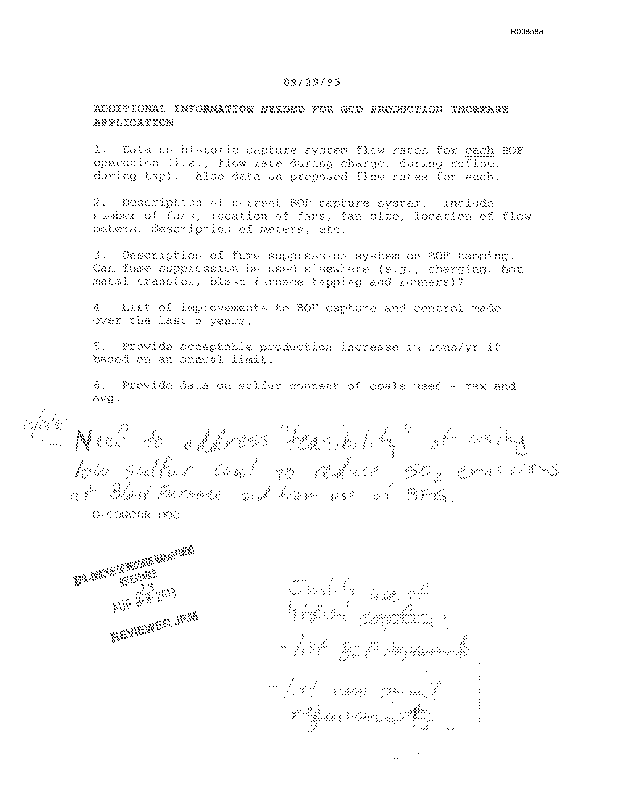 09/29/95
ADDITIONAL INFORMATION NEEDED FOR PRODUCTION INCREASE
APPLICATION
1. Data on historic capture system flow rates for each BOF
operation (i.e., flow rate during charge, during reflow,
during tap). Also data on proposed flow rates for each.
2. Description of current BOF capture system. Include
number of fans, location of fans, fan size, location of flow
meters, description of meters, etc.
3. Description of fume suppression system on BOF tapping.
Can fume suppression be used elsewhere (e.g., charging, hot
metal transfer, blast furnace tapping and runners)?
4. List of improvements to BOF capture and control made
over the last 5 years.
5. Provide acceptable production increase in tons/yr if
based on an annual limit.
6. Provide data on sulfur content of coals used - max and
avg.
Need to address "feasibility" of using
low sulfur coal to reduce SO2 emissions
at Blast Furnace and from use of BFG.
REVIEWER JPM
Clarify use of
- list
- list
requirements